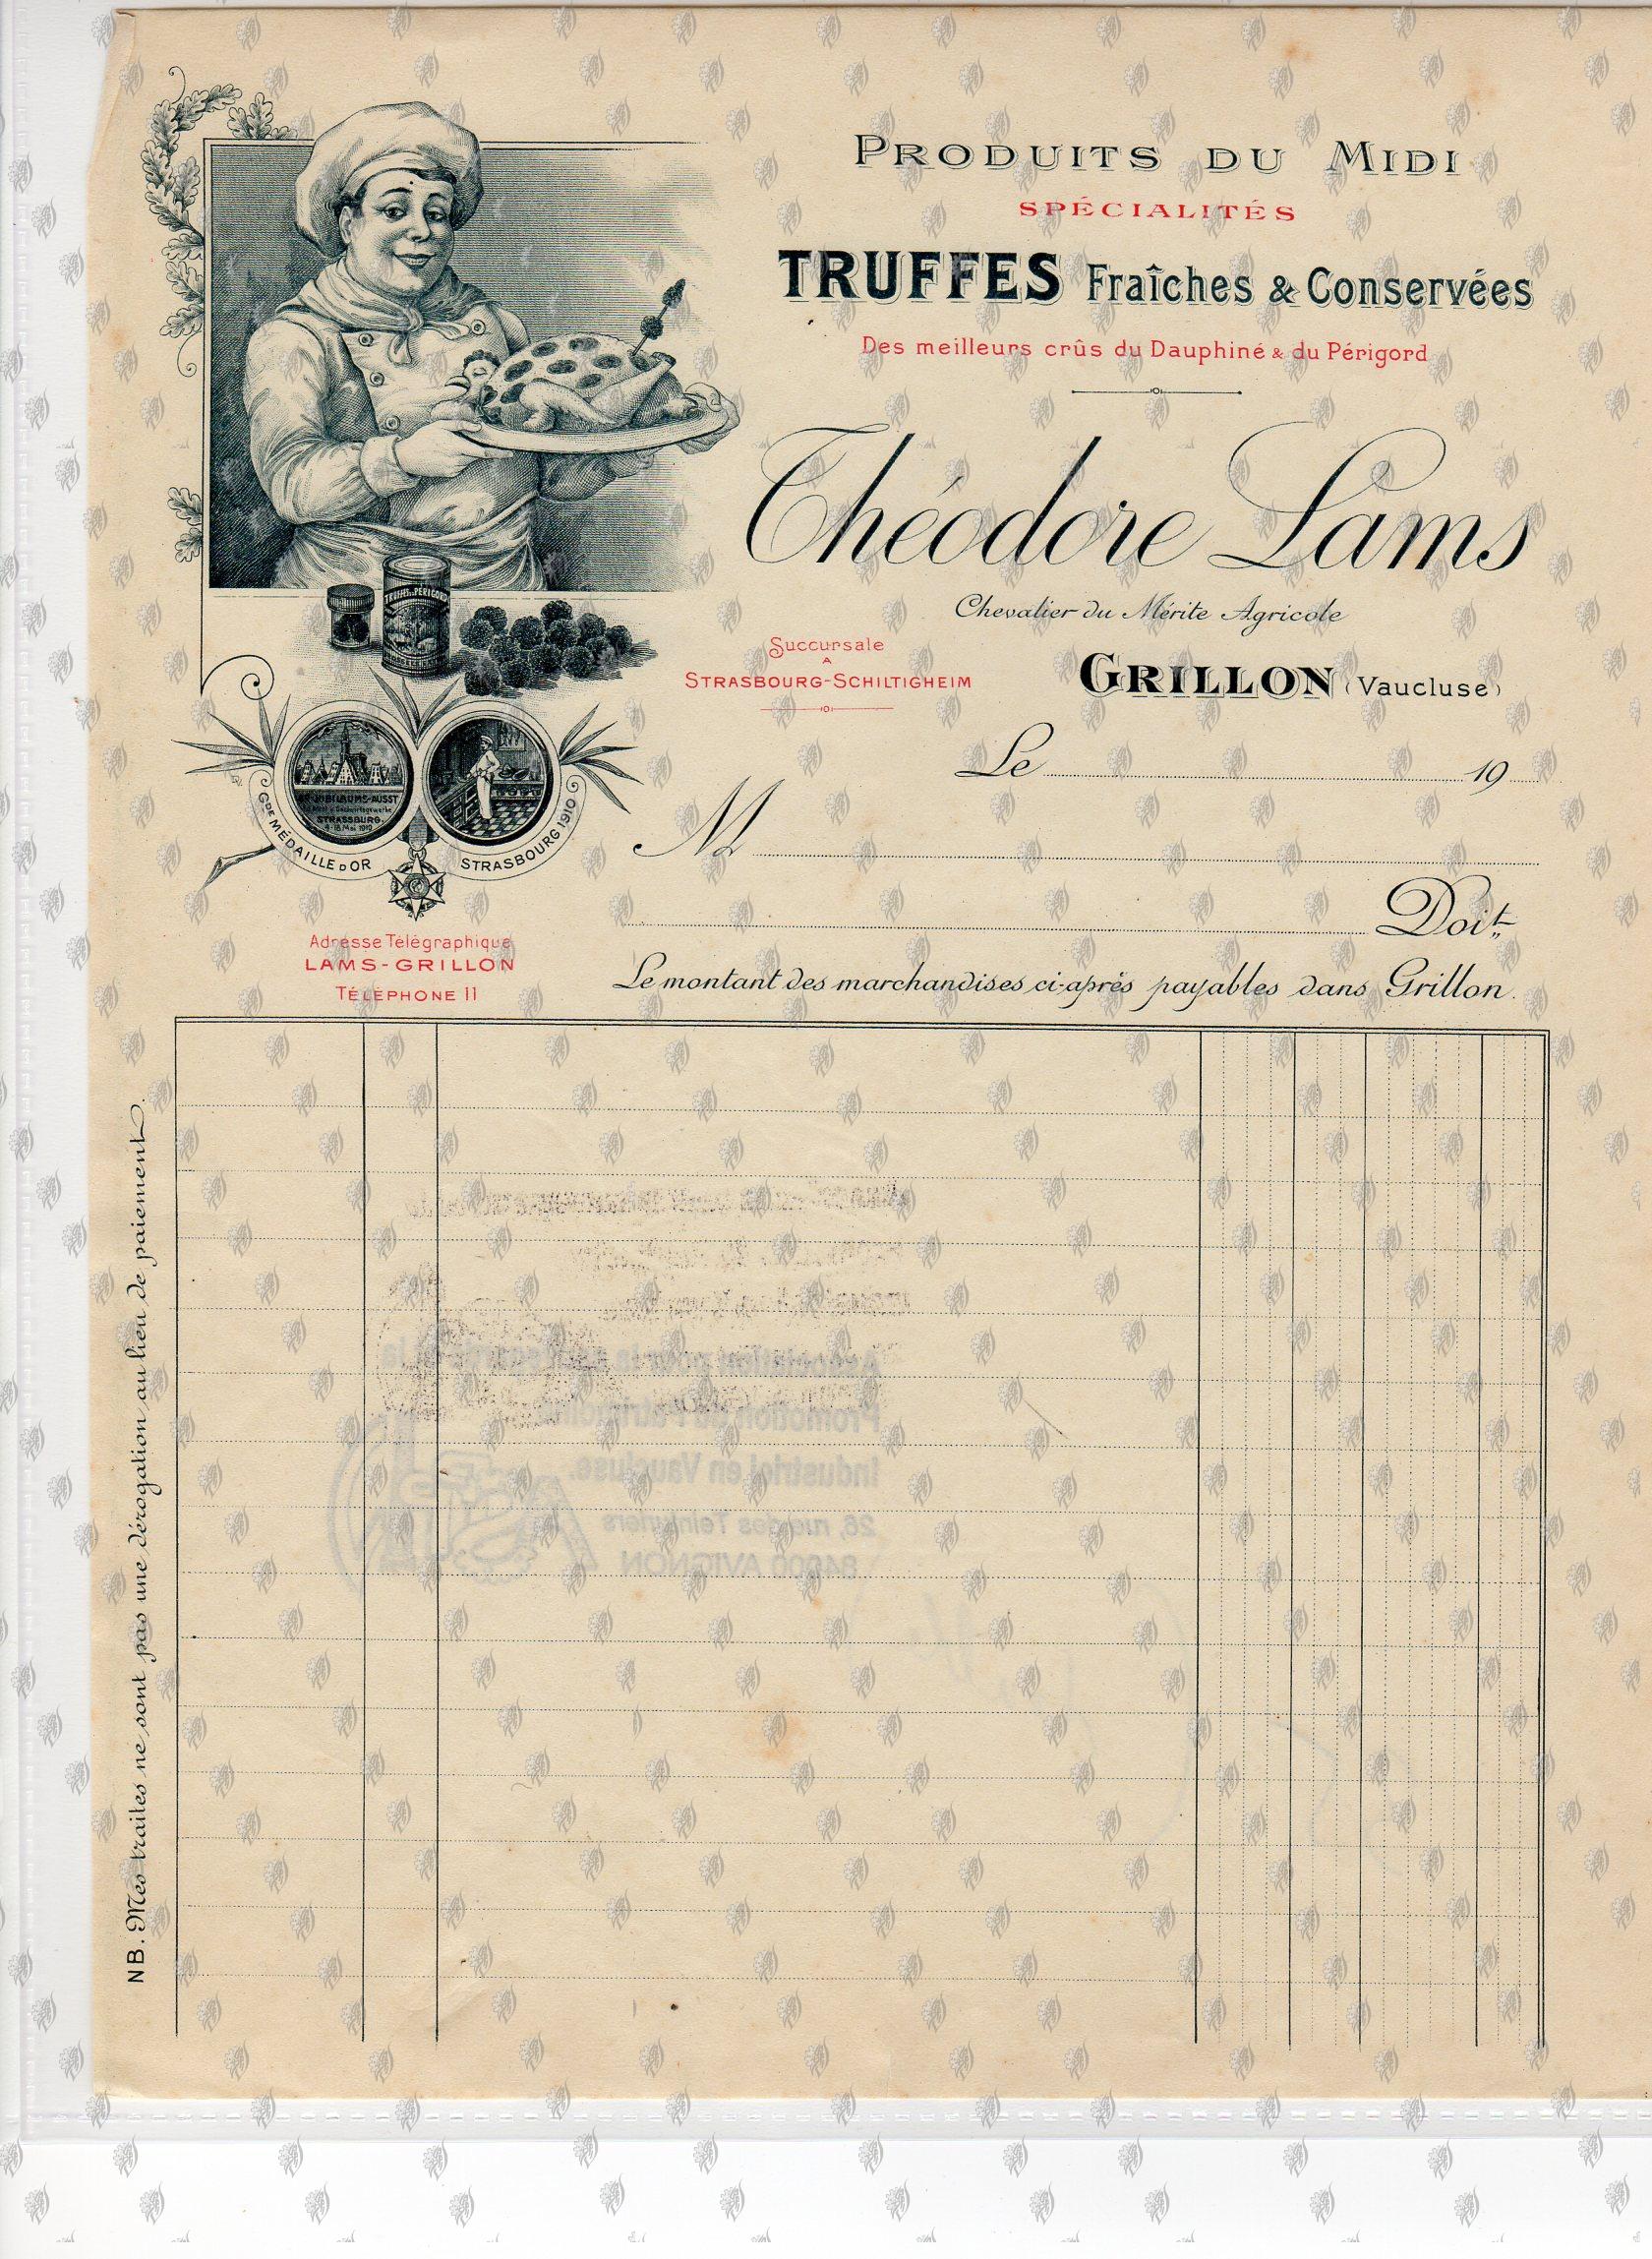 PRODUITS DU MIDI
SPÉCIALITÉS
TRUFFES Fraîches & Conservées
Des meilleurs crûs du Dauphiné & du Périgord
Théodore Lams
Chevalier du Mérite Agricole
Succursale
A
STRASBOURG-SCHILTIGHEIM
GRILLON (Vaucluse)
Le 19
M
Doit
Le montant des marchandises ci-après payables dans Grillon.
TRUFFES DU PÉRIGORD
JUBILÄUMS-AUSST
STRASSBURG.
Mai 1910
GDE MÉDAILLE D'OR
STRASBOURG 1910
Adresse Télégraphique
LAMS-GRILLON
TÉLÉPHONE 11
NB. Mes traites ne sont pas une dérogation au lieu de paiement.
Association pour la
Promotion du Patrimoine
Industriel en Vaucluse.
26, rue des Teinturiers
84000 AVIGNON